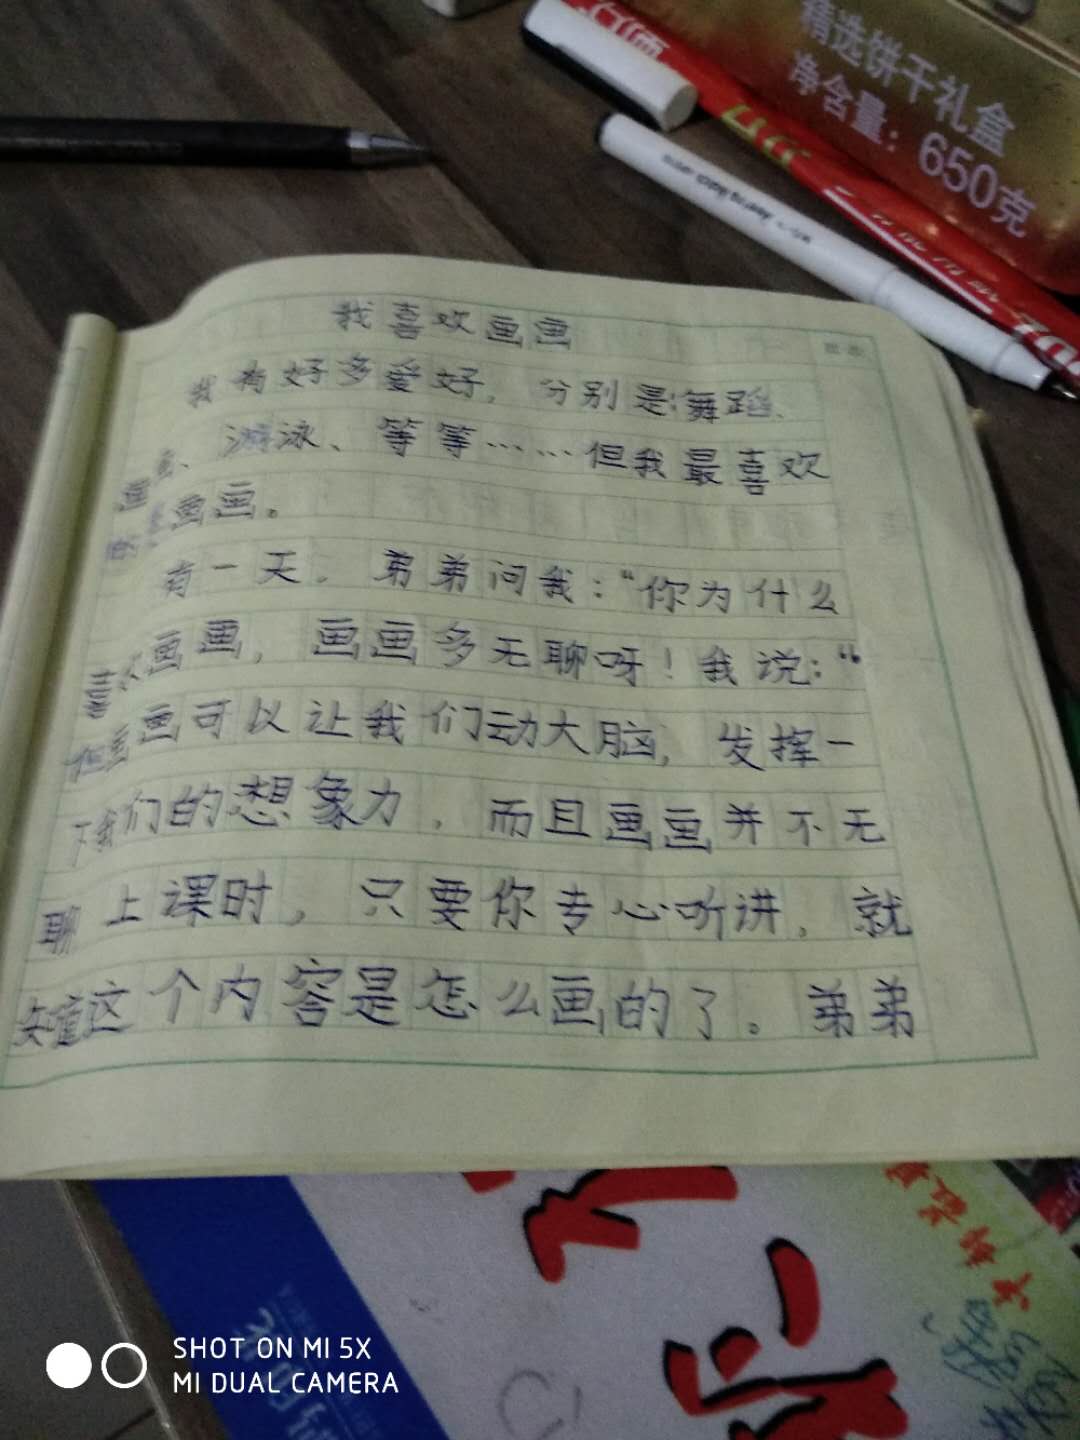 精选饼干礼盒
净含量：650克
我喜欢画画
我有好多爱好，分别是：舞蹈、
画画、游泳、等等……但我最喜欢
画画。
有一天，弟弟问我：“你为什么
喜欢画画，画画多无聊呀！我说：“
但画画可以让我们动大脑，发挥一
下我们的想象力，而且画画并不无
聊上课时，只要你专心听讲，就
知道这个内容是怎么画的了。弟弟
SHOT ON MI 5X
MI DUAL CAMERA